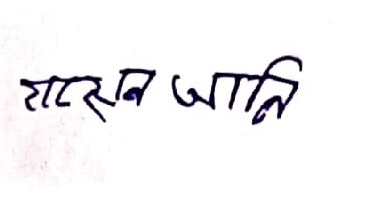 হাসেন আলি